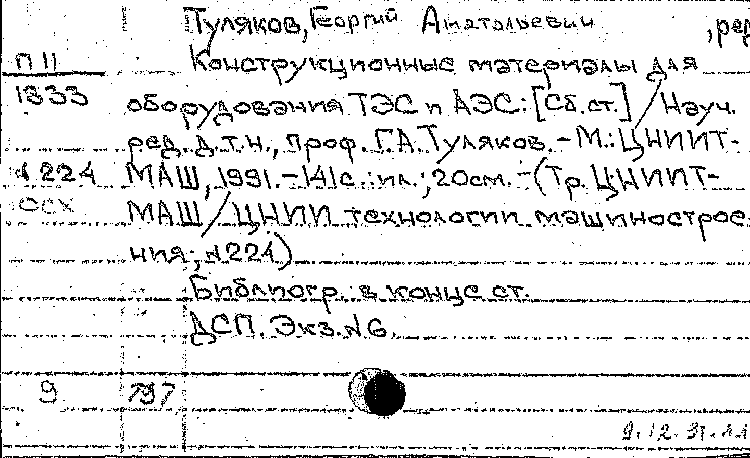 Туляков, Георгий Анатольевич, ред
П 11 Конструкционные материалы для
1333 оборудования ТЭС и АЭС: [Сб. ст.] / Науч.
ред. д.т.н., проф. Г.А. Туляков. - М.: ЦНИИТ-
N 224 МАШ, 1991. - 141с.: ил.; 20см. - (Тр. ЦНИИТ-
ссх МАШ / ЦНИИ технологии машинострое-
ния; N 224)
Библиогр. в конце ст.
ДСП. Экз. N 6.
9 797